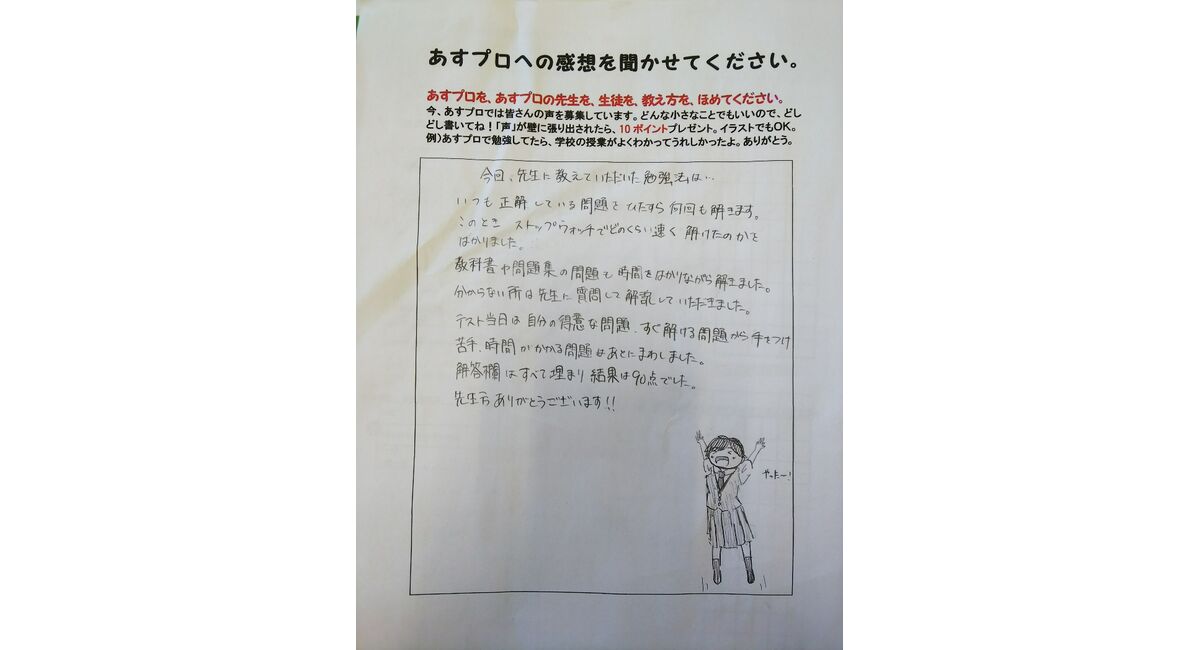 あすプロへの感想を聞かせてください。
あすプロを、あすプロの先生を、生徒を、教え方を、ほめてください。
今、あすプロでは皆さんの声を募集しています。どんな小さなことでもいいので、どし
どし書いてね！「声」が壁に張り出されたら、10 ポイントプレゼント。イラストでもOK。
例）あすプロで勉強してたら、学校の授業がよくわかってうれしかったよ。ありがとう。
今回、先生に教えていただいた勉強法は…
いつも正解している問題をひたすら何回も解きます。
このとき ストップウォッチでどのくらい速く 解けたのかを
はかりました。
教科書や問題集の問題も時間をはかりながら解きました。
分からない所は先生に質問して解説していただきました。
テスト当日は自分の得意な問題、すぐ解ける問題から手をつけ
苦手、時間がかかる問題はあとにまわしました。
解答欄はすべて埋まり結果は90点でした。
先生方ありがとうございます!!
やったー!